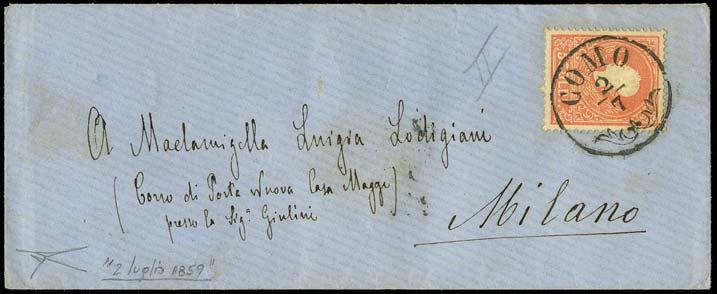 II
COMO
2/7
A Madamigella Luigia Lodigiani
(Corso di Porta Nuova Casa Maggi)
presso la Sig.ª Giulini
Milano
"2 luglio 1859"